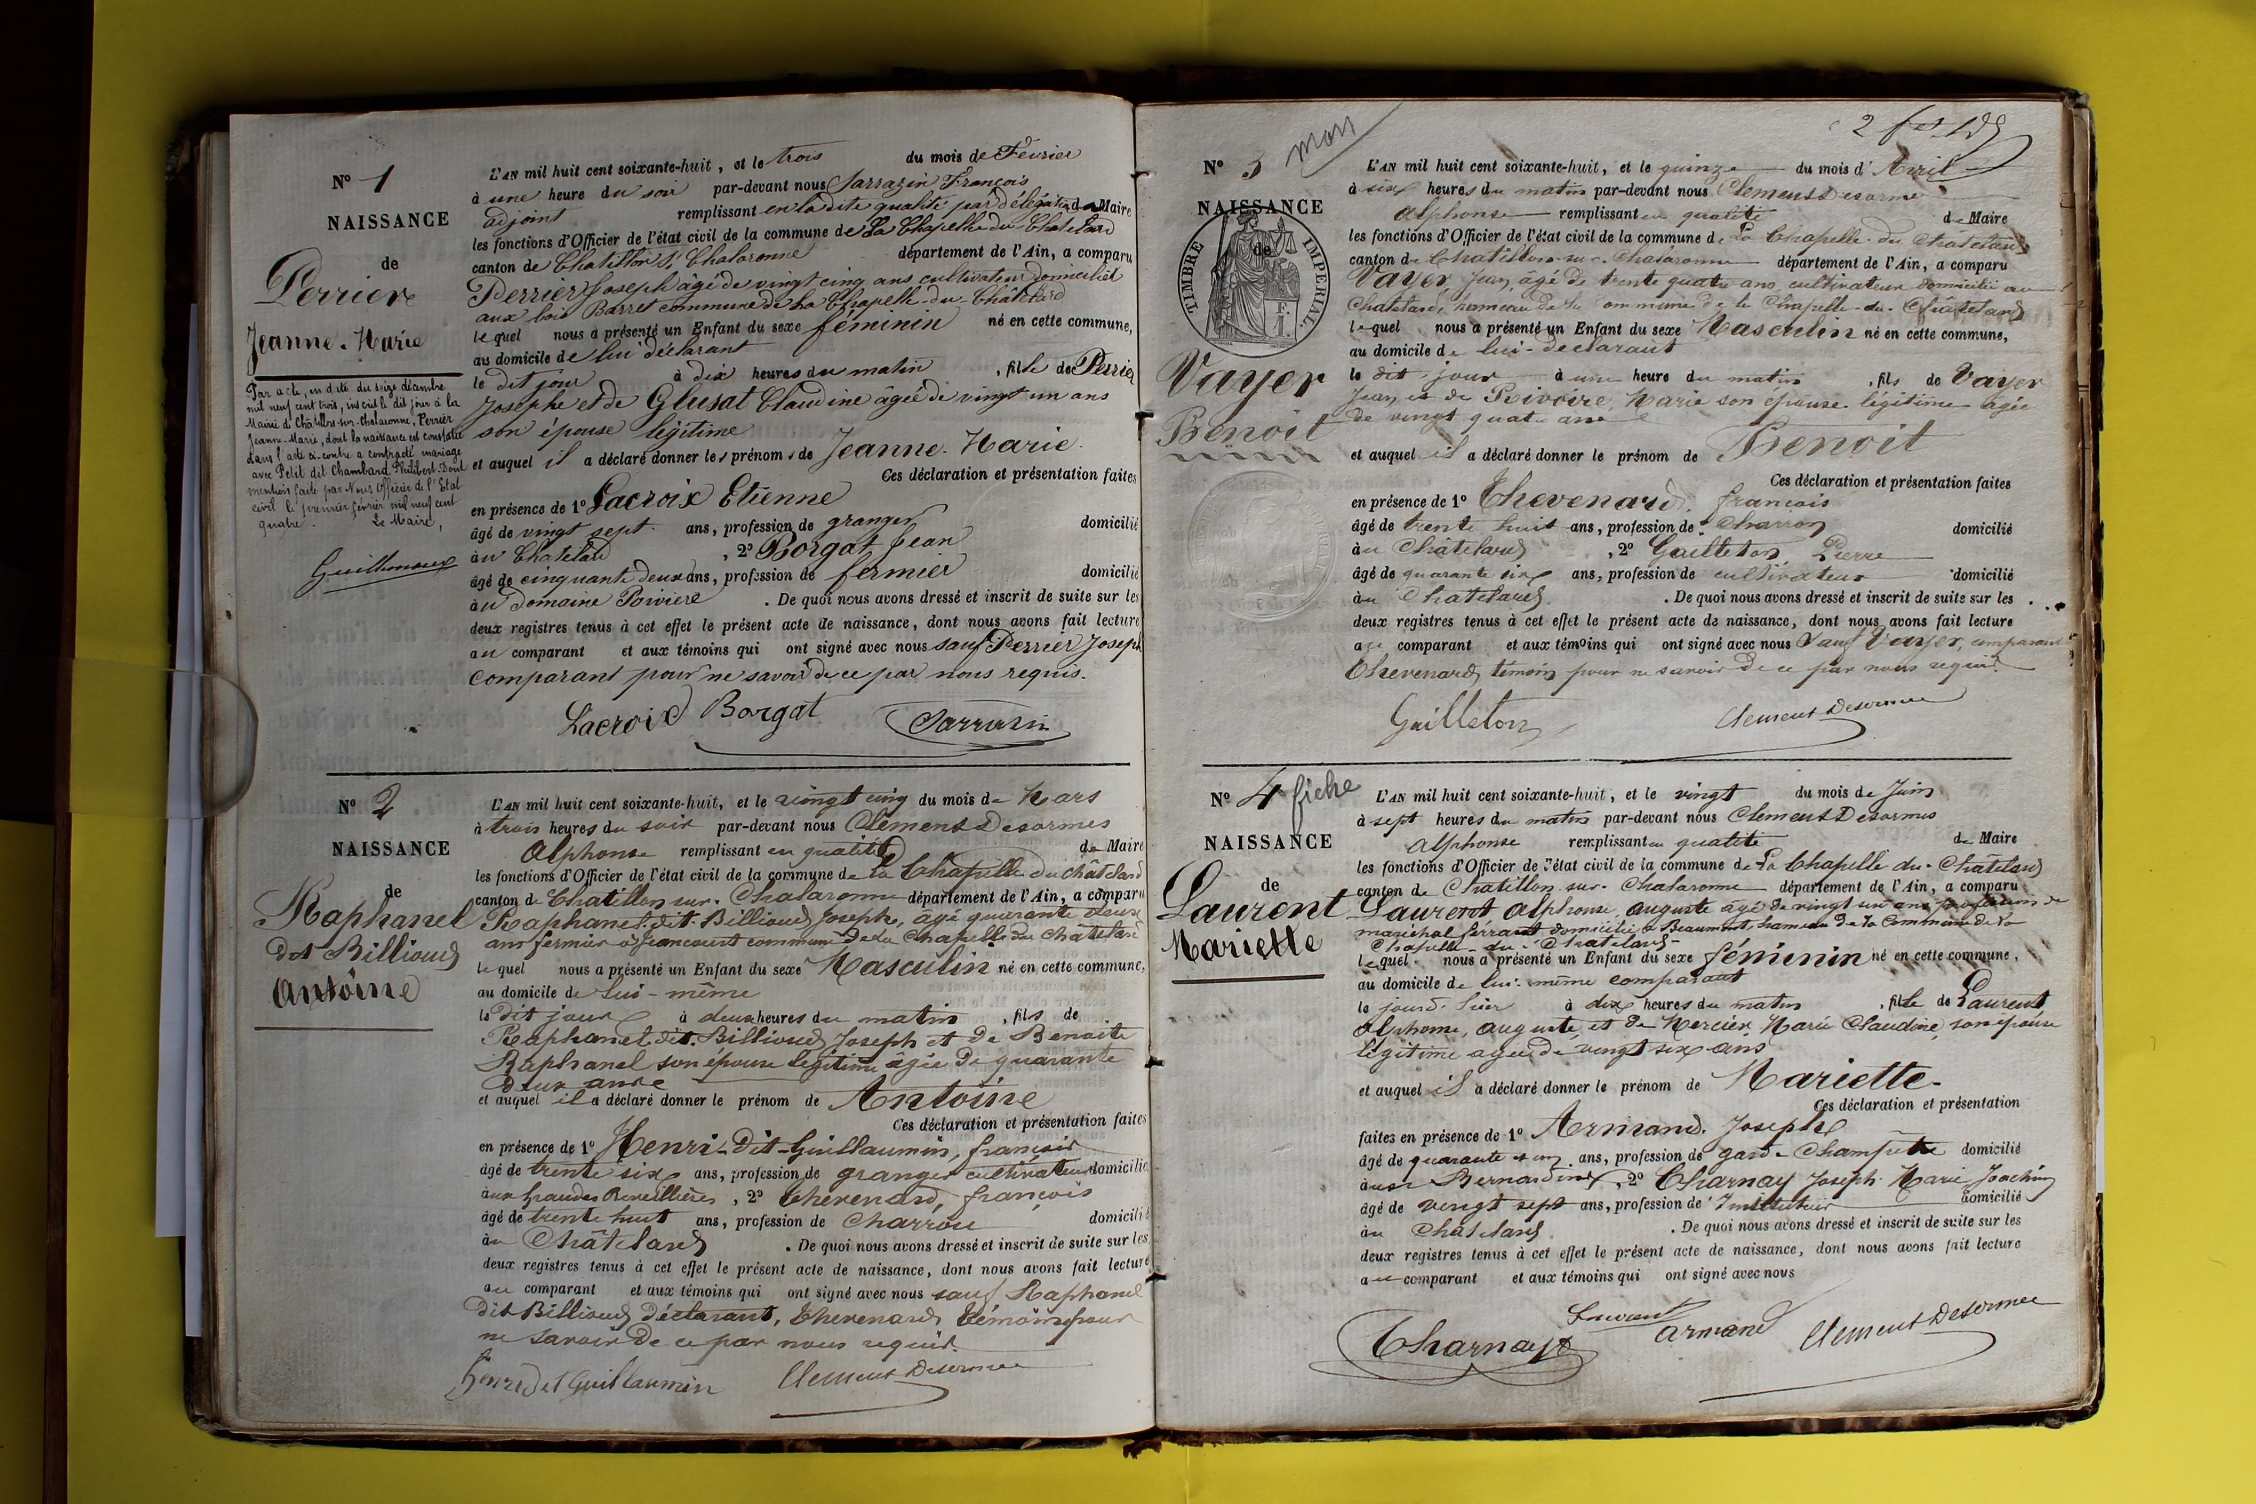 N° 1
NAISSANCE
de
Perrier
Jeanne-Marie
Par acte, en date du seize décembre
mil neuf cent trois, inscrit le dit jour à la
Mairie d' Châtillon-sur-Chalaronne, Perrier
Jeanne-Marie, dont la naissance est constatée
dans l'acte ci-contre a contracté mariage
avec Petit dit Chambard Philibert. Dont
mention faite par Nous Officier de l'Etat
civil le premier février mil neuf cent
quatre. Le Maire,
Guillemaux
L'AN mil huit cent soixante-huit, et le trois du mois de Février
à une heure du soir par-devant nous Sarrazin François
adjoint remplissant en la dite qualité par délégation de Maire
les fonctions d'Officier de l'état civil de la commune de La Chapelle du Chatelard
canton de Chatillon s/ Chalaronne département de l'Ain, a comparu
Perrier Joseph âgé de vingt cinq ans cultivateur domicilié
aux bois Barret commune de La Chapelle-du-Châtelard
lequel nous a présenté un Enfant du sexe féminin né en cette commune,
au domicile de lui déclarant
le dit jour à dix heures du matin, fille de Perrier
Josephe et de Glusat Claudine âgée de vingt un ans
son épouse légitime
et auquel il a déclaré donner les prénoms de Jeanne-Marie.
Ces déclaration et présentation faites
en présence de 1° Lacroix Etienne
âgé de vingt sept ans, profession de granger domicilié
au Chatelard, 2° Borgat Jean
âgé de cinquante deux ans, profession de fermier domicilié
au domaine Poiviere. De quoi nous avons dressé et inscrit de suite sur les
deux registres tenus à cet effet le présent acte de naissance, dont nous avons fait lecture
au comparant et aux témoins qui ont signé avec nous sauf Perrier Joseph
comparant pour ne savoir de ce par nous requis.
Lacroix Borgat Sarrazin
N° 2
NAISSANCE
de
Raphanel
dit Billioud
Antoine
L'AN mil huit cent soixante-huit, et le vingt cinq du mois de Mars
à trois heures du soir par-devant nous Clément Desormes
Alphonse remplissant en qualité de Maire
les fonctions d'Officier de l'état civil de la commune de la Chapelle du Châtelard
canton de Chatillon sur-Chalaronne département de l'Ain, a comparu
Raphanel-dit-Billioud Joseph, âgé quarante deux
ans fermier à Jeancourt commune de La Chapelle du Chatelard
lequel nous a présenté un Enfant du sexe Masculin né en cette commune,
au domicile de lui-même
le dit jour à deux heures du matin, fils de
Raphanel dit Billioud Joseph et de Benoite
Raphanel son épouse légitime âgée de quarante
deux ans
et auquel il a déclaré donner le prénom de Antoine
Ces déclaration et présentation faites
en présence de 1° Henri-Dit-Guillaumin, françois
âgé de trente six ans, profession de granger cultivateur domicilié
aux Grandes, 2° Thevenard, françois
âgé de trente huit ans, profession de Charron domicilié
au Châtelard. De quoi nous avons dressé et inscrit de suite sur les
deux registres tenus à cet effet le présent acte de naissance, dont nous avons fait lecture
au comparant et aux témoins qui ont signé avec nous sauf Raphanel
dit Billioud déclarant, Thevenard témoins pour
ne savoir de ce par nous requis.
henri dit Guillaumin Clement Desormes
2
N° 3 mon
NAISSANCE
de
TIMBRE IMPERIAL.
Vayer
Benoit
L'AN mil huit cent soixante-huit, et le quinze du mois d'Avril
à six heures du matin par-devant nous Clément Desormes
Alphonse remplissant en qualité de Maire
les fonctions d'Officier de l'état civil de la commune de La Chapelle-du Châtelard
canton de Chatillon-sur-Chalaronne département de l'Ain, a comparu
Vayer, Jean, âgé de trente quatre ans, cultivateur domicilié au
Chatelard, hameau de la commune de la Chapelle-du-Châtelard
lequel nous a présenté un Enfant du sexe Masculin né en cette commune,
au domicile de lui-déclarant
le dit jour à une heure du matin, fils de Vayer
Jean, et de Rivoire, Marie son épouse légitime âgée
de vingt quatre ans
et auquel il a déclaré donner le prénom de Benoit
Ces déclaration et présentation faites
en présence de 1° Thevenard, françois
âgé de trente huit ans, profession de Charron domicilié
au Châtelard, 2° Guilleton Pierre
âgé de quarante six ans, profession de cultivateur domicilié
au Chatelard. De quoi nous avons dressé et inscrit de suite sur les
deux registres tenus à cet effet le présent acte de naissance, dont nous avons fait lecture
au comparant et aux témoins qui ont signé avec nous sauf Vayer, comparant
Thevenard, témoin pour ne savoir de ce par nous requis.
Guilleton Clement Desormes
N° 4 fiche
NAISSANCE
de
Laurent
Mariette
L'AN mil huit cent soixante-huit, et le vingt du mois de Juin
à sept heures du matin par-devant nous Clement Desormes
Alphonse remplissant en qualité de Maire
les fonctions d'Officier de l'état civil de la commune de La Chapelle du-Chatelard
canton de Chatillon-sur-Chalaronne département de l'Ain, a comparu
Laurent Alphonse, auguste âgé de vingt un ans profession de
maréchal ferrant domicilié à Beaumont, hameau de la Commune de La
Chapelle-du-Chatelard
lequel nous a présenté un Enfant du sexe féminin né en cette commune,
au domicile de lui-même comparant
le jour d'hier à dix heures du matin, fille de Laurent
Alphonse, Auguste, et de Mercier, Marie Claudine, son épouse
légitime agée de vingt six ans
et auquel il a déclaré donner le prénom de Mariette-
Ces déclaration et présentation
faites en présence de 1° Armand Joseph
âgé de quarante et un ans, profession de garde Champêtre domicilié
aux Bernardins, 2° Charnay Joseph Marie Joachim
âgé de vingt sept ans, profession d'Instituteur domicilié
au Chatelard. De quoi nous avons dressé et inscrit de suite sur les
deux registres tenus à cet effet le présent acte de naissance, dont nous avons fait lecture
au comparant et aux témoins qui ont signé avec nous
Laurent
Charnay Armand Clement Desormes